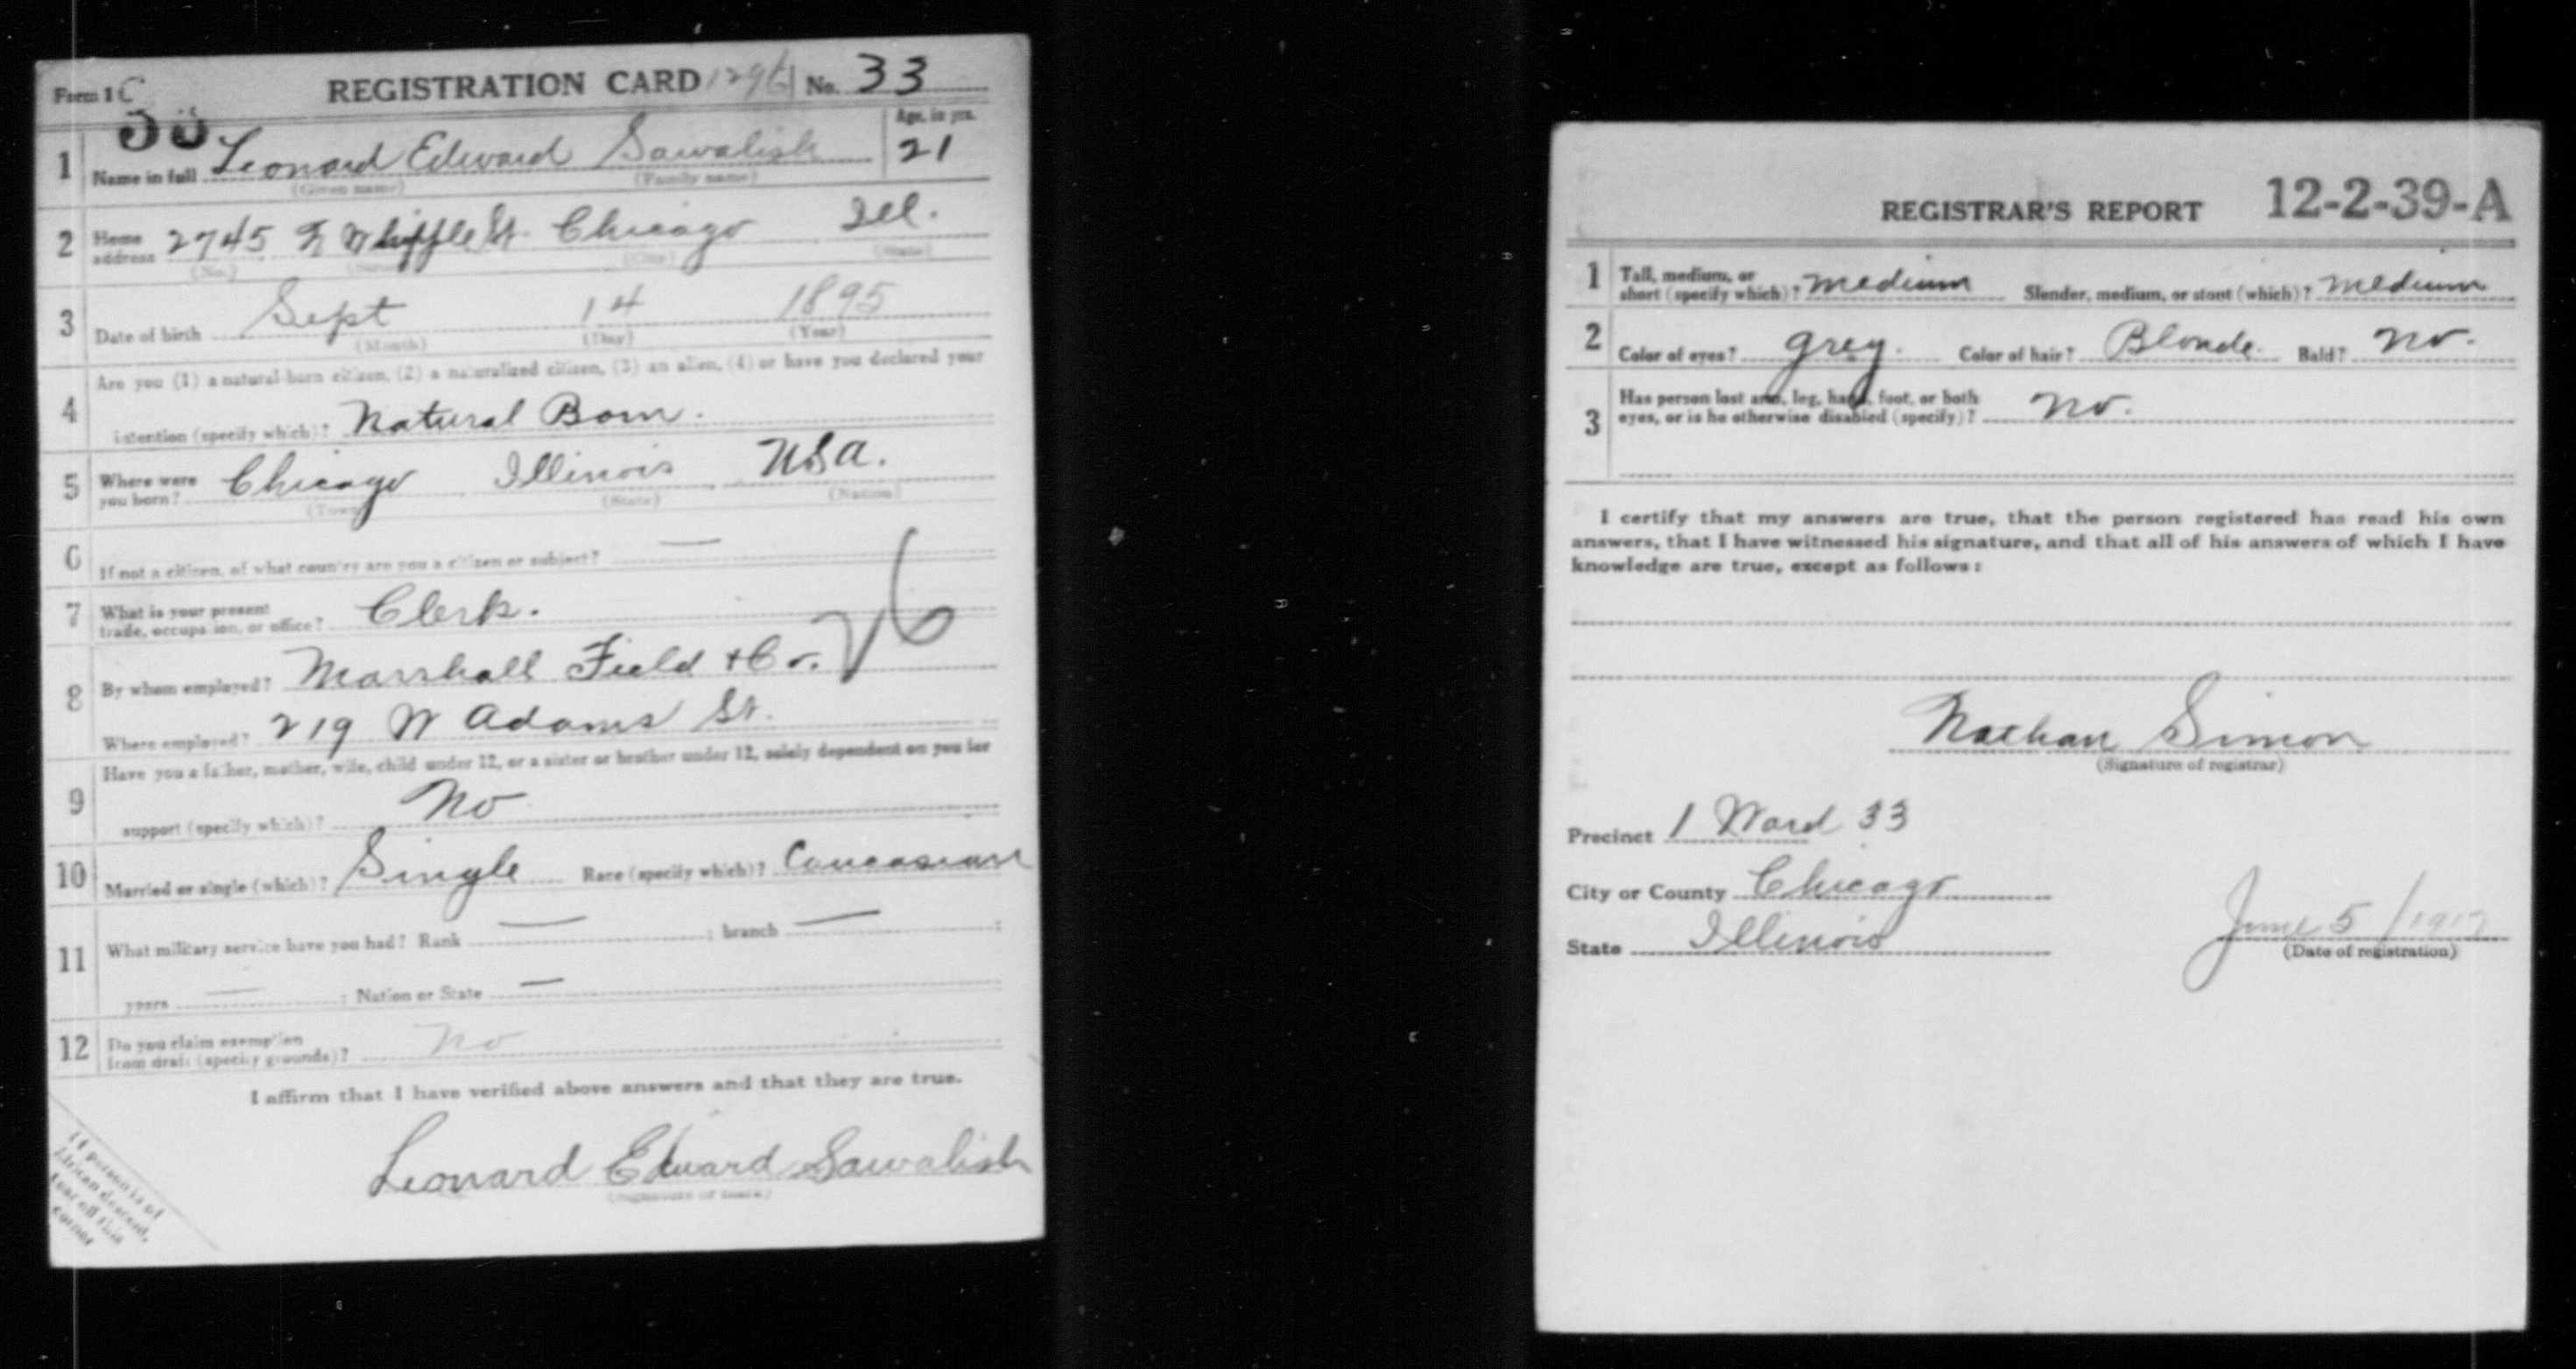 Form 1 C REGISTRATION CARD No. 33
Age, in yrs.
1 Name in full Leonard Edward Sawalish 21
(Given name) (Family name)
2 Home address 2745 N Whipple St. Chicago Ill.
(No.) (Street) (City) (State)
3 Date of birth Sept 14 1895
(Month) (Day) (Year)
Are you (1) a natural-born citizen, (2) a naturalized citizen, (3) an alien, (4) or have you declared your
4 intention (specify which)? Natural Born.
5 Where were you born? Chicago Illinois USA.
(Town) (State) (Nation)
6 If not a citizen, of what country are you a citizen or subject? —
7 What is your present trade, occupation, or office? Clerk.
26
8 By whom employed? Marshall Field & Co.
Where employed? 219 W Adams St.
Have you a father, mother, wife, child under 12, or a sister or brother under 12, solely dependent on you for
9 support (specify which)? No
10 Married or single (which)? Single Race (specify which)? Caucasian
11 What military service have you had? Rank — ; branch — ;
years — ; Nation or State —
12 Do you claim exemption from draft (specify grounds)? No
I affirm that I have verified above answers and that they are true.
Leonard Edward Sawalish
If person is of
African descent,
tear off this
corner
REGISTRAR'S REPORT 12-2-39-A
1 Tall, medium, or short (specify which)? medium Slender, medium, or stout (which)? medium
2 Color of eyes? grey. Color of hair? Blonde. Bald? No.
3 Has person lost arm, leg, hand, foot, or both
eyes, or is he otherwise disabled (specify)? No.
I certify that my answers are true, that the person registered has read his own
answers, that I have witnessed his signature, and that all of his answers of which I have
knowledge are true, except as follows:
Nathan Simon
(Signature of registrar)
Precinct 1 Ward 33
City or County Chicago
State Illinois
June 5 / 1917
(Date of registration)